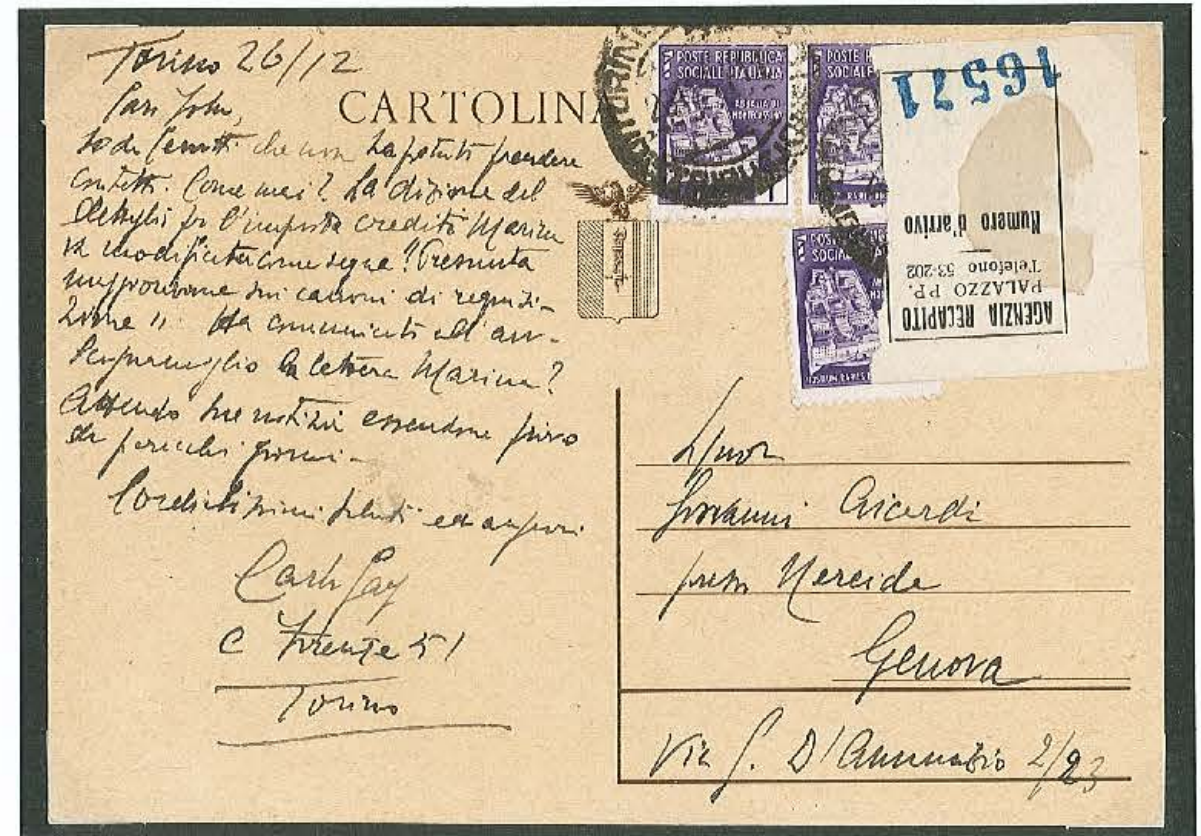 Torino 26/12
CARTOLINA
che non ha potuto prendere
contatti. Come mai? La dizione del
per l'imposta credito Marina
va modificata come segue "Presunta
sui canoni di requisi-
zione". Ha comunicato all'avv.
la lettera Marina?
Attendo sue notizie essendone privo
da parecchi giorni.
Cordialissimi saluti ed auguri
Carlo Gay
C Firenze 51
Torino
POSTE REPUBBLICA
SOCIALE ITALIANA
ABBAZIA DI
MONTECASSINO
POSTE
SOCIALE
POSTE
SOCIALE
16571
AGENZIA RECAPITO
PALAZZO PP.
Telefono 53-202
Numero d'arrivo
Signor
Giovanni Aicardi
presso Nereide
Genova
Via G. D'Annunzio 2/23